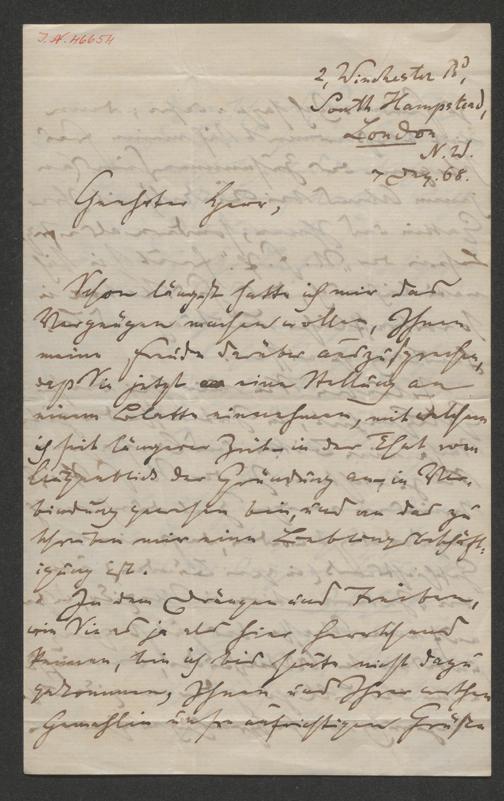 J.N. 46654
2, Winchester Rd,
South Hampstead,
London
N.W.
7 Dez. 68.
Geehrter Herr,
Schon längst hatte ich mir das
Vergnügen machen wollen, Ihnen
meine Freude darüber auszusprechen,
daß Sie jetzt eine Stellung an
einem Blatte einnehmen, mit welchem
ich seit längerer Zeit, in der That vom
Augenblick der Gründung an, in Ver-
bindung gewesen bin, und an das zu
schreiben mir eine Lieblingsbeschäft-
igung ist.
In dem Drängen und Treiben,
wie Sie es ja als hier herrschend
kennen, bin ich bis heute nicht dazu
gekommen, Ihnen und Ihrer werthen
Gemahlin unsre aufrichtigen Grüße